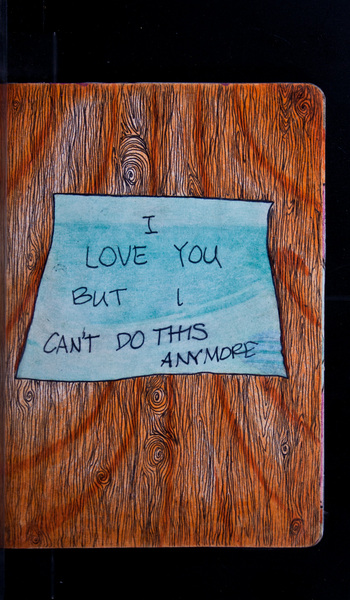 I
LOVE YOU
BUT I
CAN'T DO THIS
ANYMORE